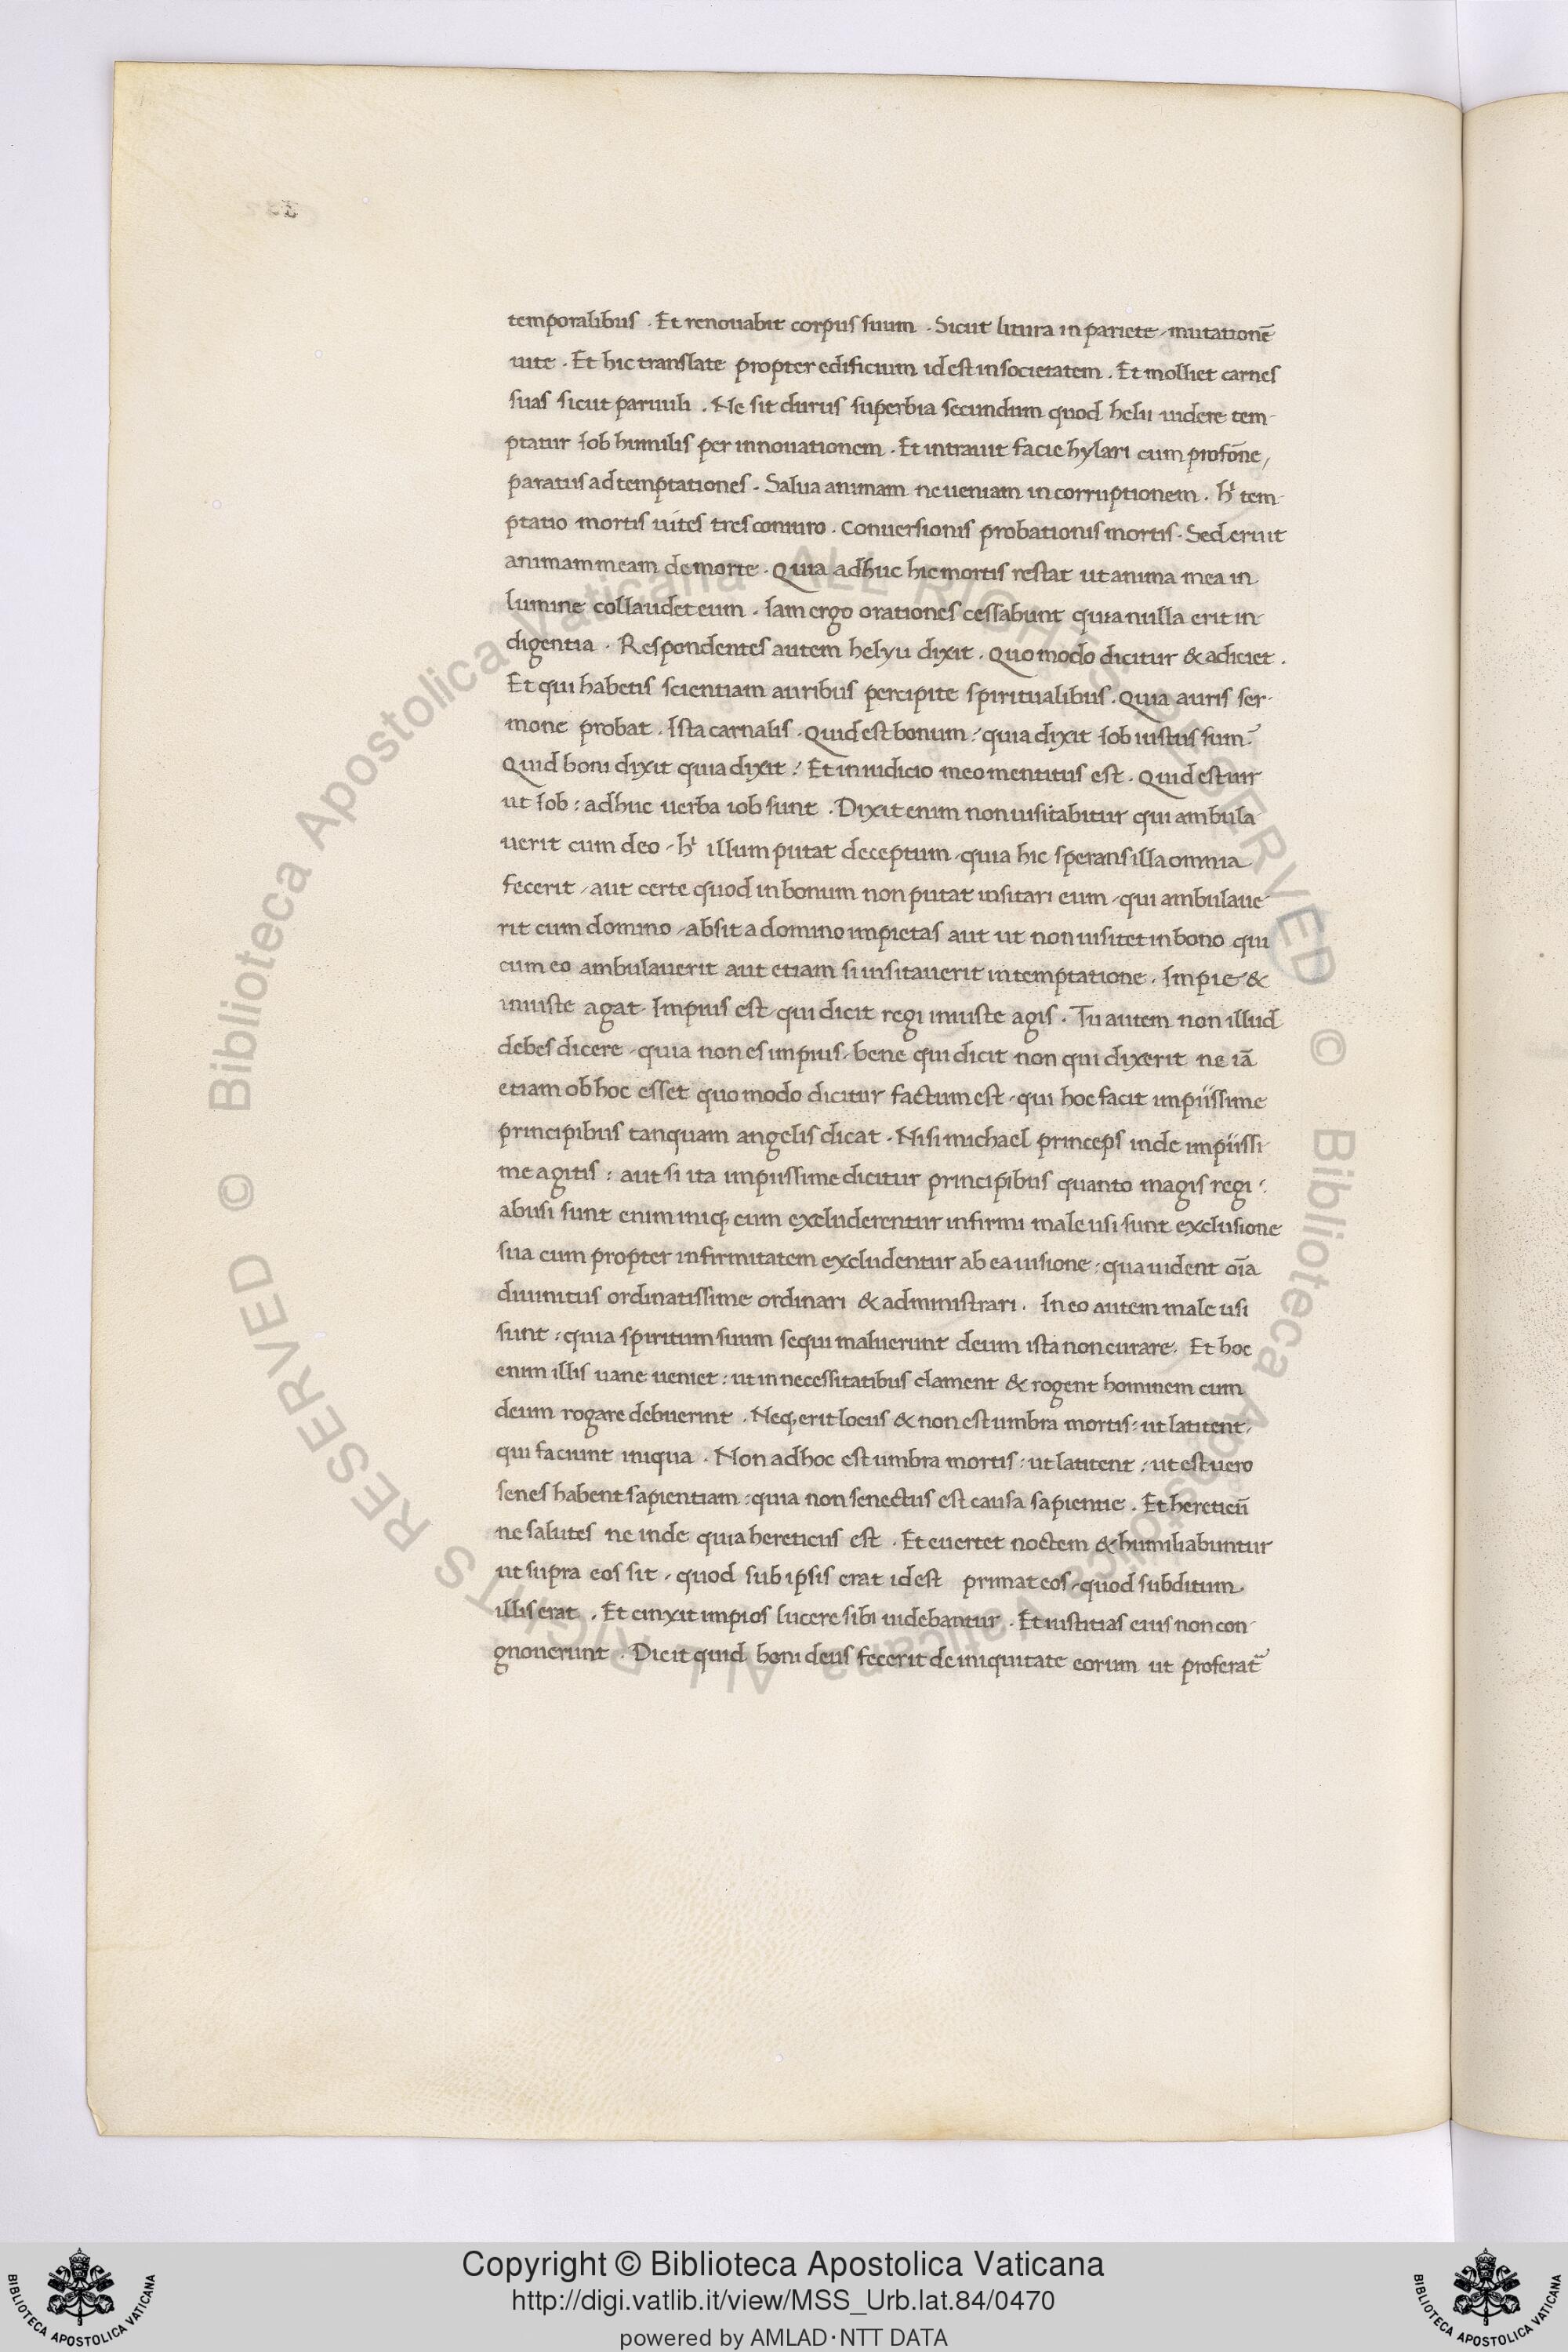 temporalibus . Et renouabit corpus suum . Sicut litura in pariete , mutationē
uite . Et hic translate propter edificium id est in societatem . Et molliet carnes
suas sicut paruuli . Ne sit durus superbia secundum quod heliu uidere tem-
ptatur Iob humilis per innouationem . Et intrauit facie hylari cum profōne ,
paratus ad temptationes . Salua animam ne ueniam in corruptionem . tem-
ptatio mortis uites tres . Conuersionis probationis mortis . Sed eruit
animam meam de morte . Quia adhuc hic mortis restat ut anima mea in
lumine collaudet eum . Iam ergo orationes cessabunt quia nulla erit in-
digentia . Respondentes autem helyu dixit . Quo modo dicitur & adiciet .
Et qui habetis scientiam auribus percipite spiritualibus . Quia auris ser-
mone probat . Ista carnalis . Quid est bonum ? quia dixit Iob iustus sum ?
Quid boni dixit quia dixit ? Et in iudicio meo mentitus est . Quid est uir
ut Iob : adhuc uerba iob sunt . Dixit enim non uisitabitur qui ambula
uerit cum deo , illum putat deceptum , quia hic sperans illa omnia
fecerit , aut certe quod in bonum non putat uisitari eum , qui ambulaue
rit cum domino , absit a domino impietas aut ut non uisitet in bono qui
cum eo ambulauerit aut etiam si uisitauerit in temptatione . Impie &
iniuste agat . Impius est , qui dicit regi iniuste agis . Tu autem non illud
debes dicere , quia non es impius , bene qui dicit non qui dixerit ne iā
etiam ob hoc esset quo modo dicitur factum est , qui hoc facit impiissime
principibus tanquam angelis dicat . Nisi michael princeps inde impiissi-
me agitis : aut si ita impiissime dicitur principibus quanto magis regi ?
abusi sunt enim iniq; cum excluderentur infirmi male usi sunt exclusione
sua cum propter infirmitatem excludentur ab ea uisione : qua uident oīa
diuinitus ordinatissime ordinari & administrari . In eo autem male usi
sunt : quia spiritum suum sequi maluerunt deum ista non curare . Et hoc
enim illis uane ueniet : ut in necessitatibus clament & rogent hominem cum
deum rogare debuerint . Neq; erit locus & non est umbra mortis : ut latitent ,
qui faciunt iniqua . Non ad hoc est umbra mortis : ut latitent : ut est uero
senes habent sapientiam : quia non senectus est causa sapientie . Et hereticū
ne salutes ne inde quia hereticus est . Et euertet noctem & humiliabuntur
ut supra eos sit , quod sub ipsis erat id est primat eos , quod subditum
illis erat . Et cinxit impios lucere sibi uidebantur . Et iustitias eius non con-
gnouerunt . Dicit quid boni deus fecerit de iniquitate eorum ut proferat
Copyright © Biblioteca Apostolica Vaticana
http://digi.vatlib.it/view/MSS_Urb.lat.84/0470
powered by AMLAD·NTT DATA